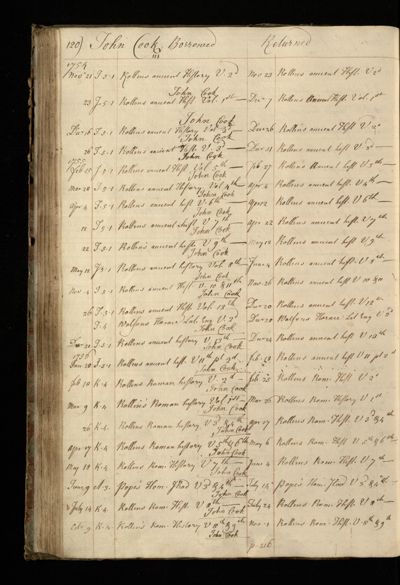 120) John Cook Borrowed Returned
1754
Nov 21 J.5.1 Rollins ancient History V 2d Nov 23 Rollins ancient Hist. V 2d
John Cook
23 J.5.1 Rollins ancient Hist. Vol. 1st Dec 7 Rollins Hist. Vol. 1st
John Cook
Dec 18 J.5.1 Rollins ancient History Vol 3d Dec 26 Rollins ancient Hist V
John Cook
26 J.5.1 Rollins ancient Hist. V. 3d Dec 31 Rollins ancient hist V
John Cook
1755
Feb 15 J.5.1 Rollins ancient Hist. Vol 5th Feb 27 Rollins ancient hist. V 5th
John Cook
Mar 28 J.5.1 Rollins ancient History Vol 4th Apr 4 Rollins ancient hist. V 4th
John Cook
Apr 4 J.5.1 Rollins ancient hist V 6th Apr 12 Rollins ancient hist. V 6th
John Cook
12 J.5.1 Rollins ancient hist V 7th Apr 22 Rollins ancient hist. V 7th
John Cook
22 J.5.1 Rollins ancient hist. V 9th May 12 Rollins ancient hist. V 9th
John Cook
May 12 J.5.1 Rollins ancient history Vol. June 4 Rollins ancient hist. V
John Cook
Nov 4 J.5.1 Rollins ancient Hist V. 10 & 11th Nov 26 Rollins ancient hist V 10 & 11
John Cook
26 J.5.1 Rollins ancient Hist. Vol. 12th Dec 20 Rollins ancient hist. V 12th
J.4 Horace Lat Eng V 2d Dec 20 Horace Lat Eng V 2d
John Cook
Dec 20 J.5.1 Rollins ancient history V 13th Dec 24 Rollins ancient hist. V 13th
John Cook
1756
Jan 28 J.5.1 Rollins ancient hist. V 11th pt 2d Feb Rollins ancient hist V 11 pt 2d
John Cook
Feb 10 K.4 Rollins Roman history V 2d Feb 25 Rollins Rom: Hist V 2d
John Cook
Mar 9 K.4 Rollin's Roman history Vol 1st Mar 26 Rollins Rom: History V 1st
John Cook
26 K.4 Rollins Roman history V 3d & 4th Apr 17 Rollins Rom: Hist. V 3d & 4th
John Cook
Apr 17 K.4 Rollins Roman history V 5th & 6th May 6 Rollins Rom: Hist V 5th & 6th
John Cook
May 18 K.4 Rollins Rom: History V 7th June 4 Rollins Rom: Hist. V 7th
John Cook
June 9 Pope's Hom: Iliad V 3d & 4th July 15 Pope's Hom: Iliad V 3d & 4th
John Cook
July 14 K.4 Rollins Rom: Hist. V July 24 Rollins Rom: Hist. V
John Cook
Oct 9 K.4 Rollin's Rom: History V 8th & 9th Nov 1 Rollins Rom: Hist. V 8th & 9th
John Cook
p. 216